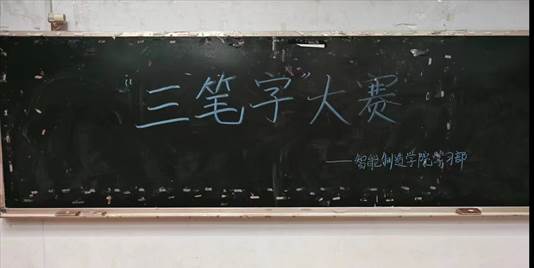 “三笔字”大赛
——智能制造学院学习部